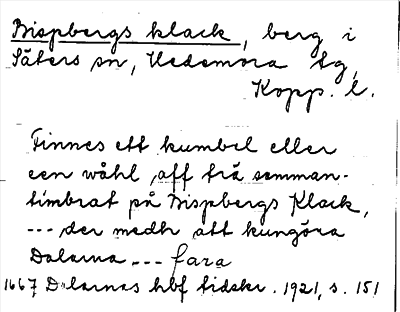 Bispbergs klack, berg i
Säters sn, Hedemora tg,
Kopp. l.
Finnes ett kumbel eller
een wåhl, aff trä samman-
timbrat på Bispbergs Klack,
--- der medh att kungöra
Dalarna --- fara
1667 Dalarnas hbf tidskr. 1921, s. 151